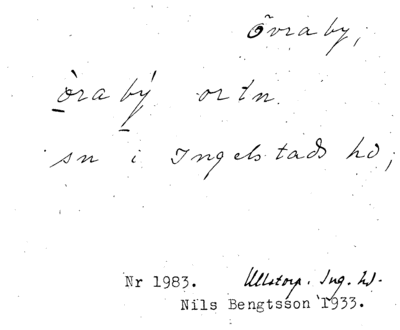 Övraby,
òrabý ortn.
sn i Ingelstads hd,
Nr 1983. Ullstorp. Ing. hd.
Nils Bengtsson 1933.